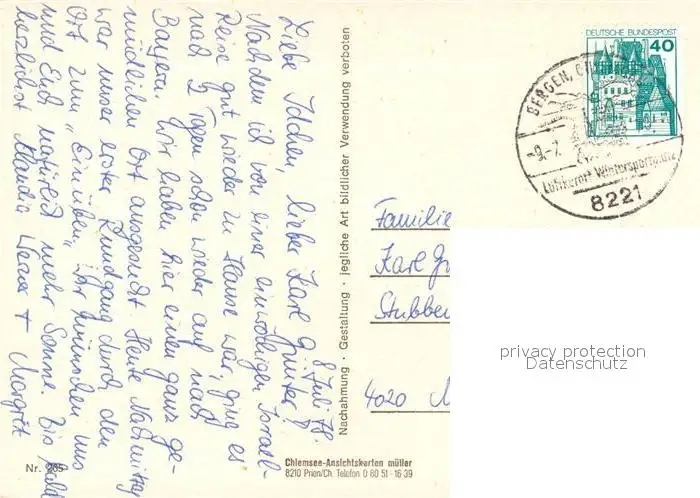 8. Juli 78.
Liebe Jdchen, lieber Karl Günter!
Nachdem ich von einer einwöchigen Israel-
Reise gut wieder zu Hause war, ging es
nach 2 Tagen schon wieder auf nach
Bayern. Wir haben hier einen ganz ge-
mütlichen Ort ausgesucht. Heute Nachmittag
war unser erster Rundgang durch den
Ort zum „Einüben". Wir wünschen uns
und Euch natürlich mehr Sonne. Bis bald
herzlichst Klaudia Werner + Margret
Nachahmung · Gestaltung · jegliche Art bildlicher Verwendung verboten
DEUTSCHE BUNDESPOST
40
BERGEN,
-9.-7.
Luftkurort Wintersportplatz
8221
Familie
Karl
4020
privacy protection
Datenschutz
Nr. 265
Chiemsee-Ansichtskarten müller
8210 Prien/Ch. Telefon 0 80 51 - 16 39